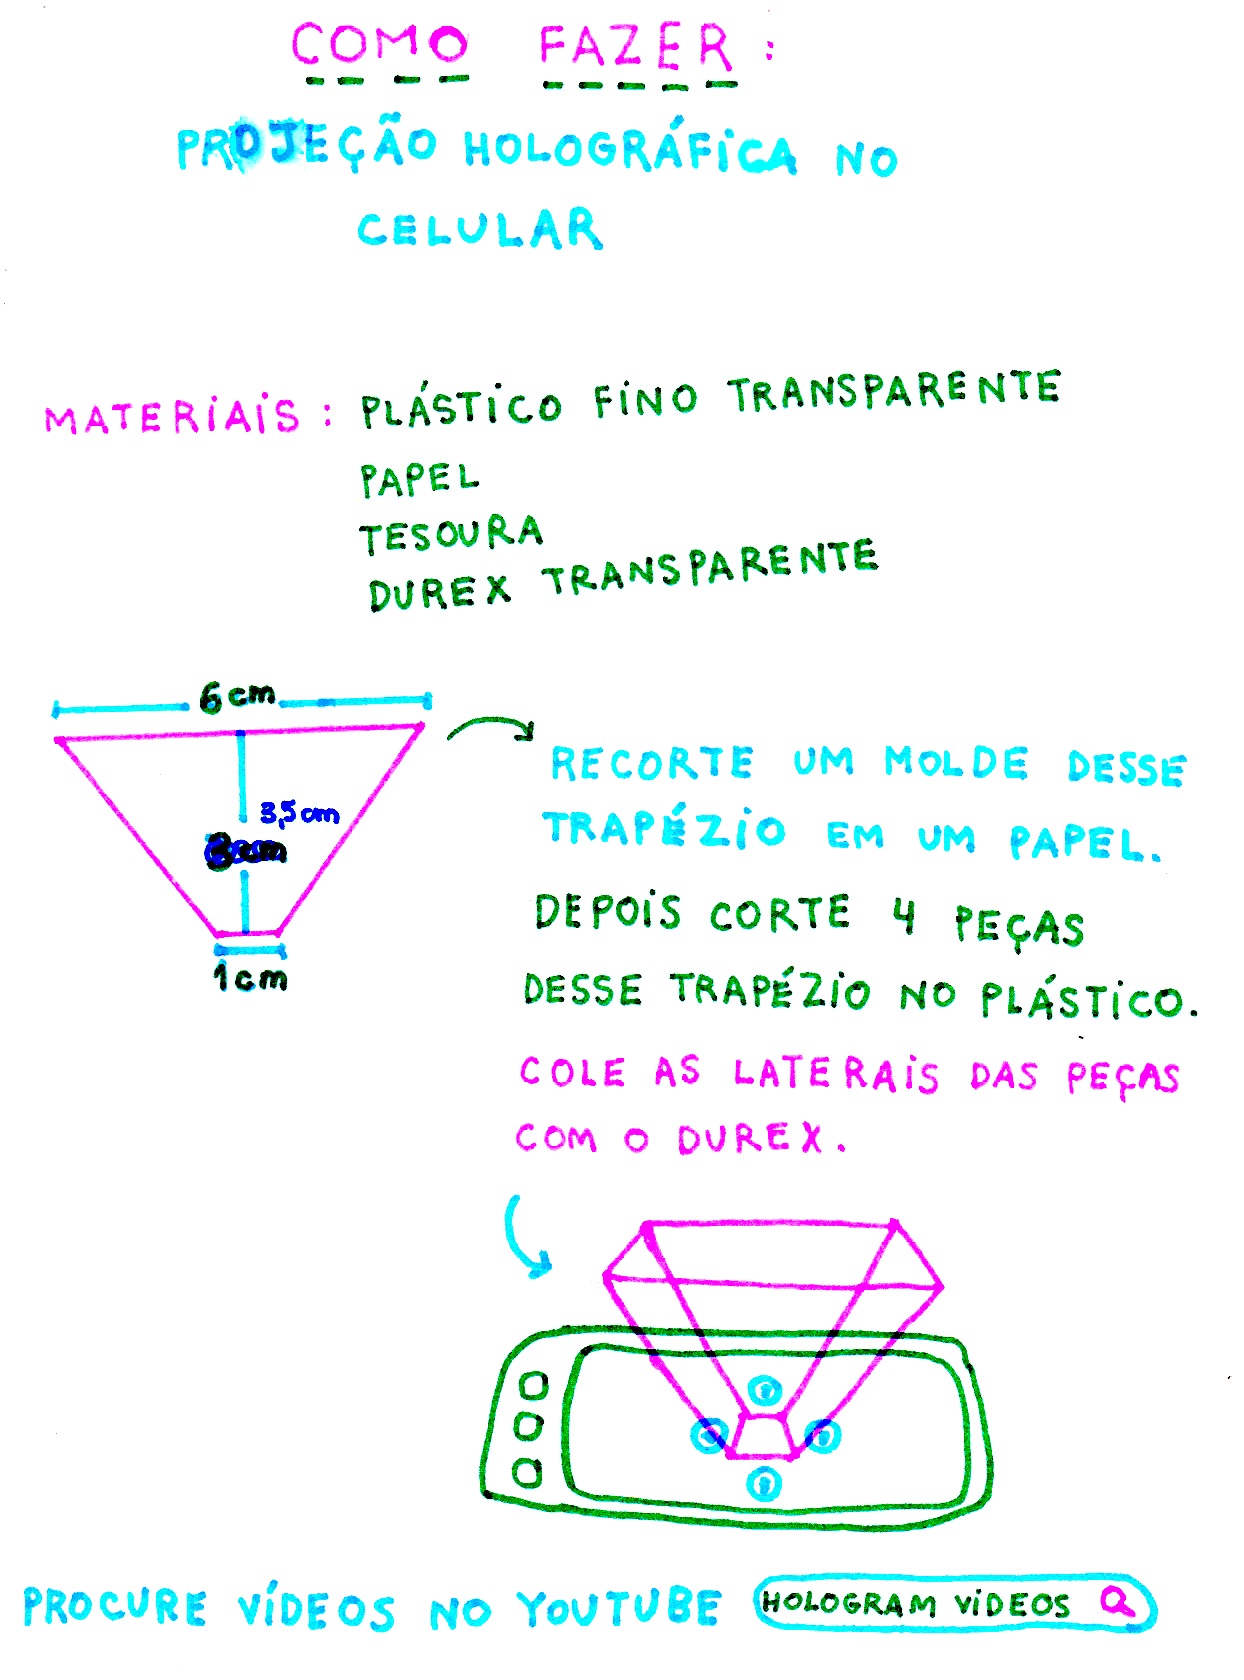 COMO FAZER:
PROJEÇÃO HOLOGRÁFICA NO
CELULAR
MATERIAIS: PLÁSTICO FINO TRANSPARENTE
PAPEL
TESOURA
DUREX TRANSPARENTE
6cm
3,5cm
1cm
RECORTE UM MOLDE DESSE
TRAPÉZIO EM UM PAPEL.
DEPOIS CORTE 4 PEÇAS
DESSE TRAPÉZIO NO PLÁSTICO.
COLE AS LATERAIS DAS PEÇAS
COM O DUREX.
PROCURE VÍDEOS NO YOUTUBE HOLOGRAM VÍDEOS